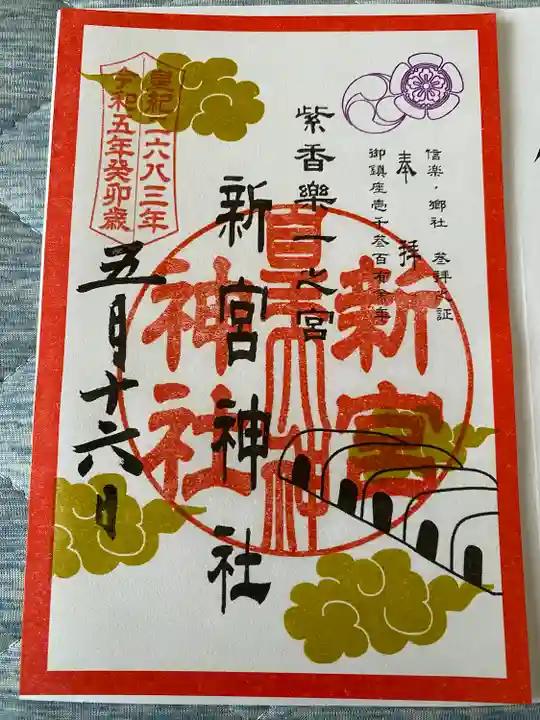 信楽・郷社 参拝之証
奉拝
御鎮座壱千叁百有余年
紫香樂一之宮
新宮神社
新宮
神社
皇紀二六八三年
令和五年癸卯歳
五月十六日